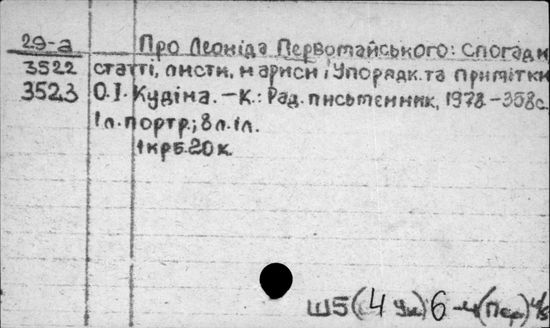 29-а Про Леоніда Первомайського: Спогади
3522 статті, листи, нариси / Упорядк. та примітки
3523 О.І. Кудіна. – К.: Рад. письменник, 1978. – 358с.
1л. портр.; 8л. іл.
1крб. 20к.
Ш5(4Ук)6-4(Пер)